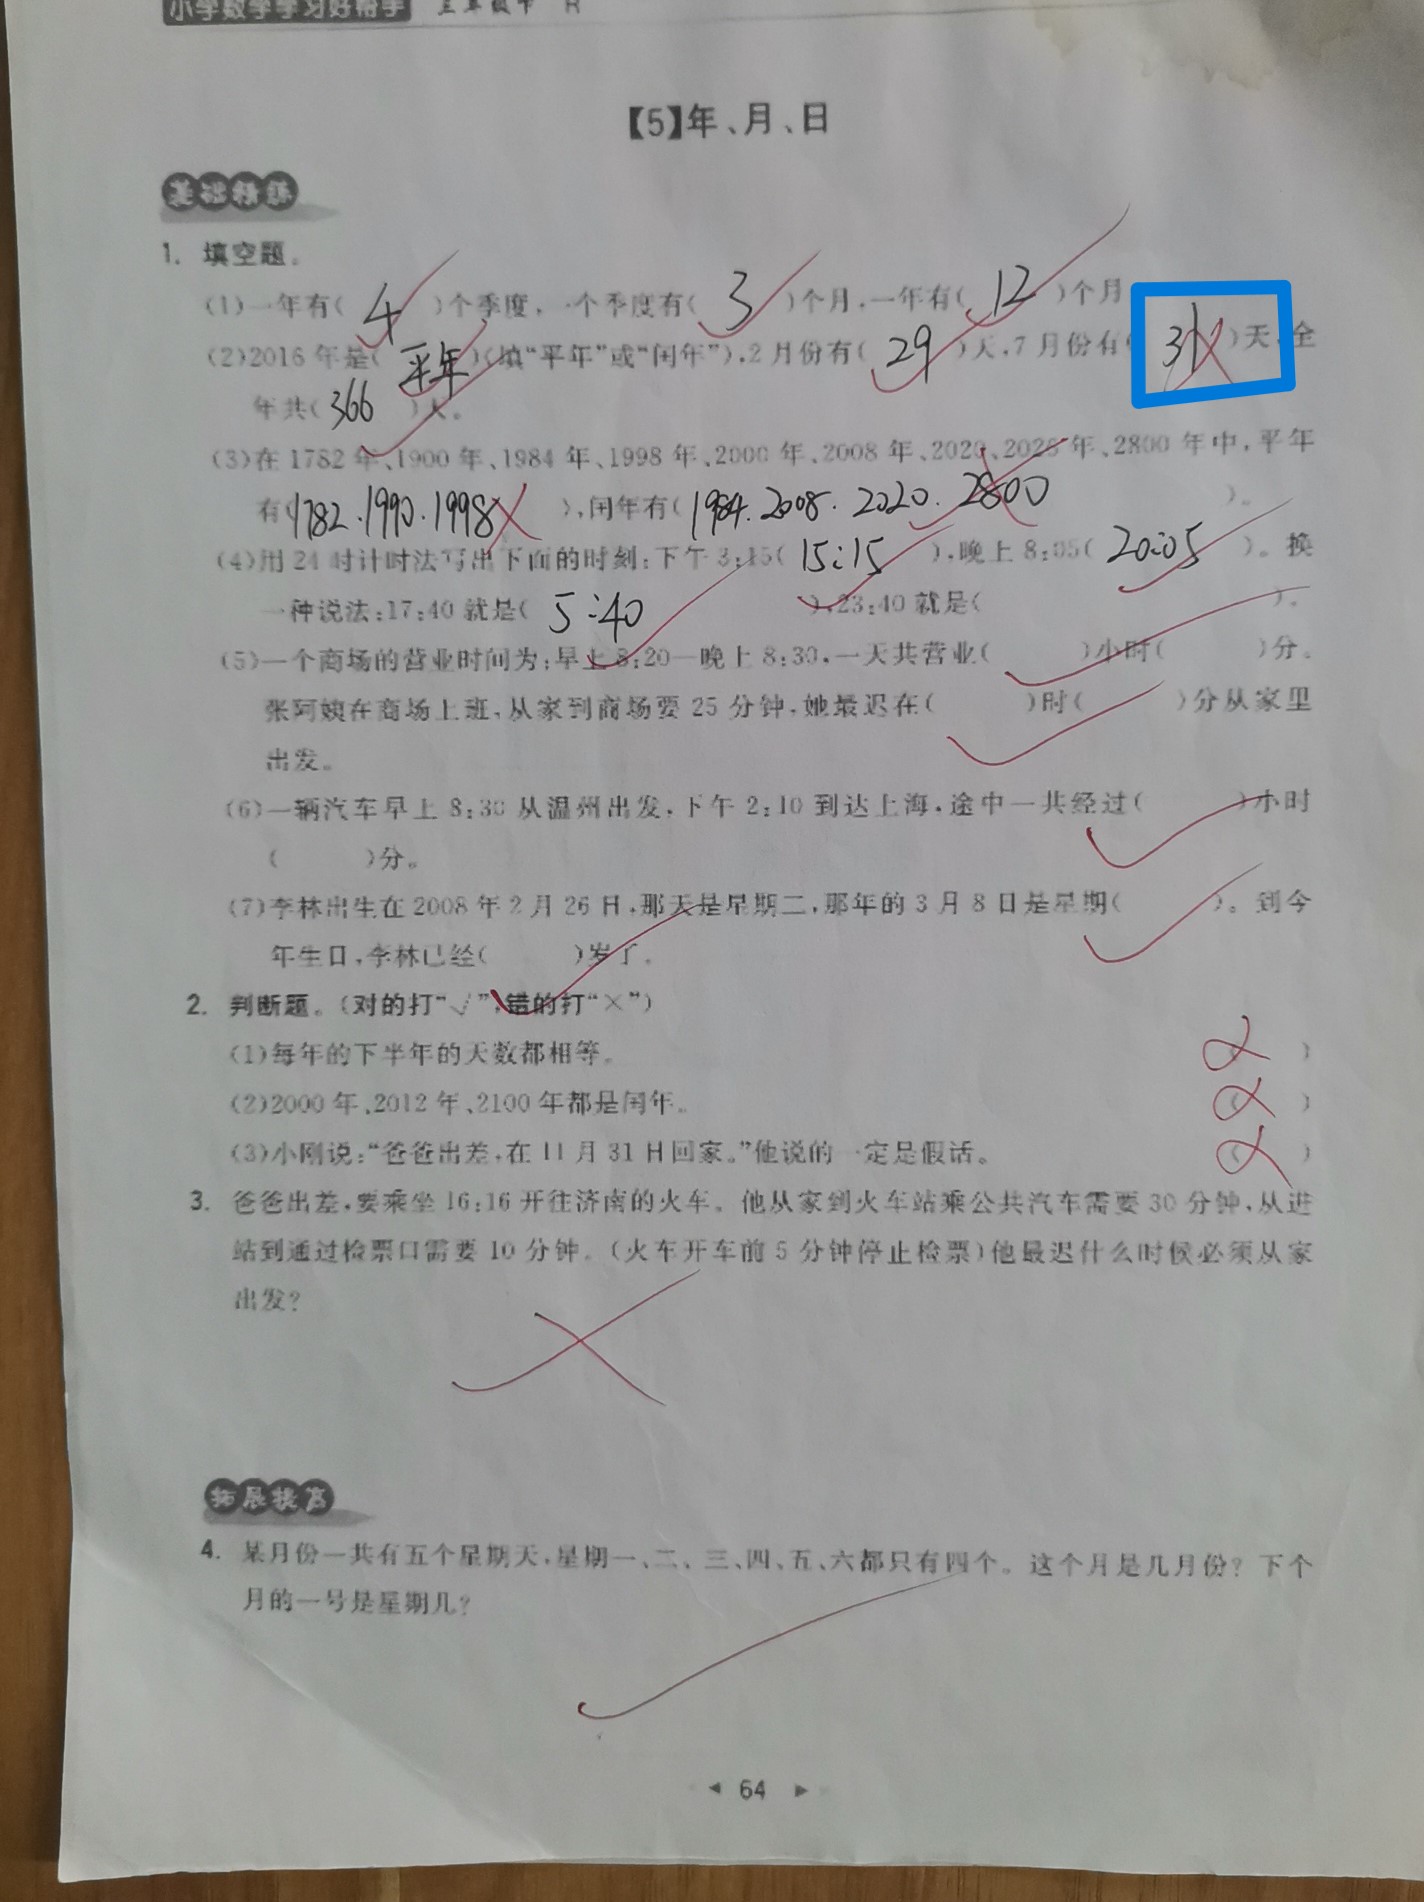 小学数学学习好帮手 三年级下 R
【5】年、月、日
基础精练
1. 填空题。
(1)一年有( 4 )个季度，一个季度有( 3 )个月，一年有( 12 )个月
(2)2016年是( 平年 )(填“平年”或“闰年”),2月份有( 29 )天,7月份有( 31 )天,全
年共( 366 )天。
(3)在1782年、1900年、1984年、1998年、2000年、2008年、2020、2026年、2800年中,平年
有(1782.1990.1998 ),闰年有(1984.2008.2020.2800 )。
(4)用24时计时法写出下面的时刻:下午3:15( 15:15 ),晚上8:05( 20:05 )。换
一种说法:17:40就是( 5:40 ),23:40就是( )。
(5)一个商场的营业时间为:早上8:20—晚上8:30,一天共营业( )小时( )分。
张阿姨在商场上班,从家到商场要25分钟,她最迟在( )时( )分从家里
出发。
(6)一辆汽车早上8:30从温州出发,下午2:10到达上海,途中一共经过( )小时
( )分。
(7)李林出生在2008年2月26日,那天是星期二,那年的3月8日是星期( )。到今
年生日,李林已经( )岁了。
2. 判断题。(对的打“√”,错的打“×”)
(1)每年的下半年的天数都相等。 ( )
(2)2000年、2012年、2100年都是闰年。 ( )
(3)小刚说:“爸爸出差,在11月31日回家。”他说的一定是假话。 ( )
3. 爸爸出差,要乘坐16:16开往济南的火车。他从家到火车站乘公共汽车需要30分钟,从进
站到通过检票口需要10分钟。(火车开车前5分钟停止检票)他最迟什么时候必须从家
出发?
拓展提高
4. 某月份一共有五个星期天,星期一、二、三、四、五、六都只有四个。这个月是几月份? 下个
月的一号是星期几?
64